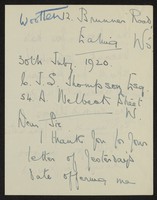 12. Brunner Road
Ealing W5
30th July. 1920
C. J. S. Thompson Esq
54 A Welbeck Street
W
Dear Sir
I thank you for your
letter of yesterday's
date offering me